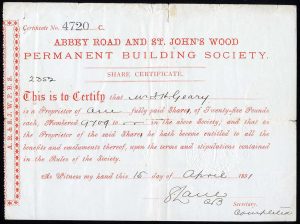 Certificate No. 4720 C.
ABBEY ROAD AND ST. JOHN'S WOOD
PERMANENT BUILDING SOCIETY.
SHARE CERTIFICATE.
2352
This is to Certify that Geary
is a Proprietor of one fully paid Share of Twenty-five Pounds
each Numbered 9709 to in the above Society, and that as
the Proprietor of the said Shares he hath become entitled to all the
benefits and emoluments thereof, upon the terms and stipulations contained
in the Rules of the Society.
As Witness my hand this 15 day of April 1891
Secretary.